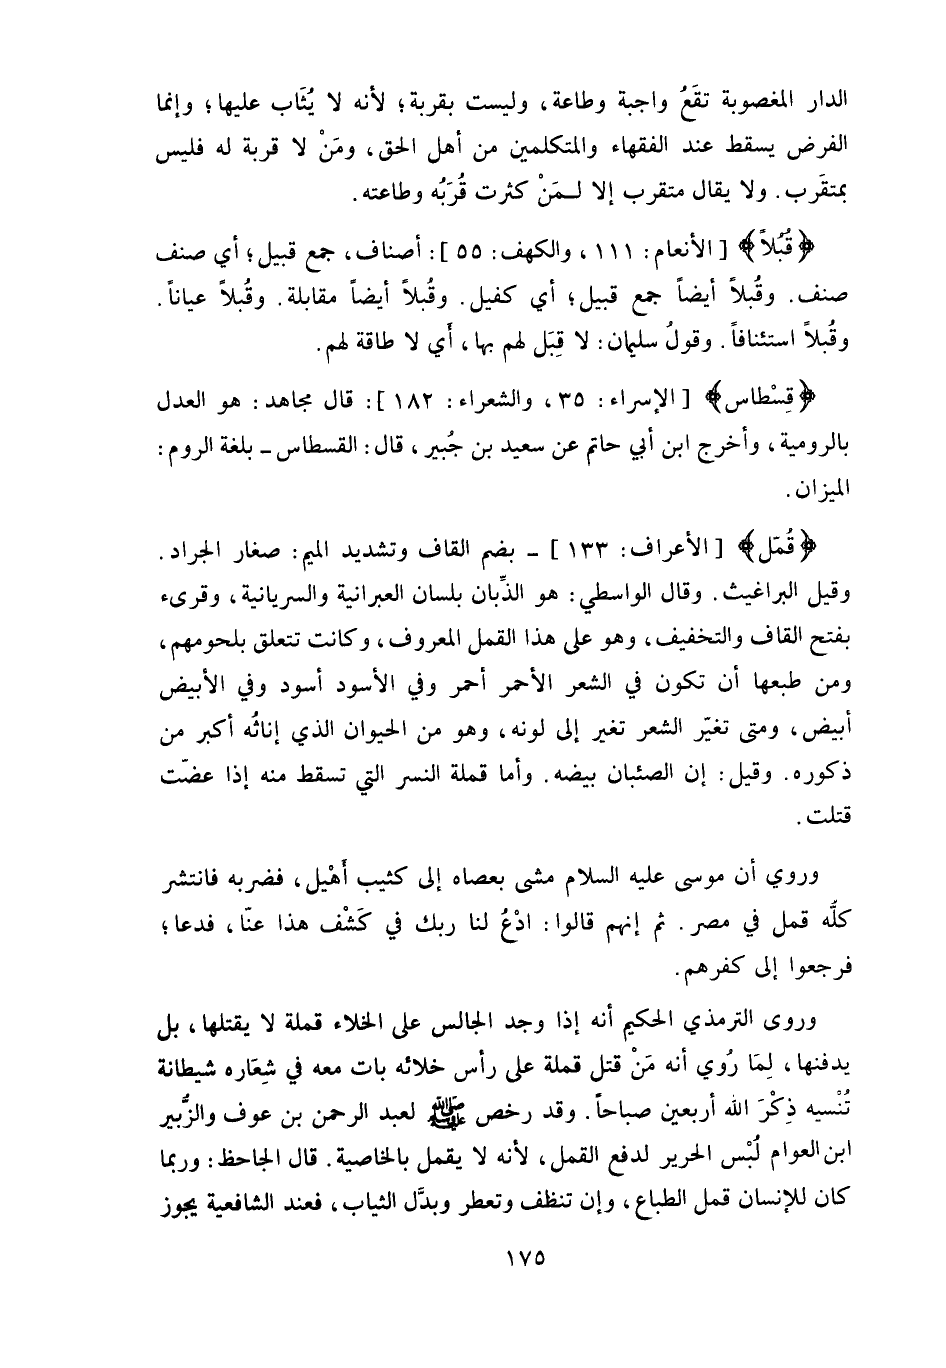 الدار المغصوبة تقَعُ واجبة وطاعة، وليست بقربة؛ لأنه لا يُثَاب عليها؛ وإنما
الفرض يسقط عند الفقهاء والمتكلمين من أهل الحق، ومَنْ لا قربة له فليس
بمتقَرب. ولا يقال متقرب إلا لـمَنْ كثرت قُرَبُه وطاعته.
﴿قُبُلاً﴾ [الأنعام: ١١١، والكهف: ٥٥]: أصناف، جمع قبيل؛ أي صنف
صنف. وقُبلاً أيضاً جمع قبيل؛ أي كفيل. وقُبلاً أيضاً مقابلة. وقُبلاً عياناً.
وقُبلاً استئنافاً. وقولُ سليمان: لا قِبَل لهم بها، أَي لا طاقة لهم.
﴿قِسْطاس﴾ [الإسراء: ٣٥، والشعراء: ١٨٢]: قال مجاهد: هو العدل
بالرومية، وأخرج ابن أبي حاتم عن سعيد بن جُبير، قال: القسطاس ـ بلغة الروم:
الميزان.
﴿قُمّل﴾ [الأعراف: ١٣٣] ـ بضم القاف وتشديد الميم: صغار الجراد.
وقيل البراغيث. وقال الواسطي: هو الذِّبان بلسان العبرانية والسريانية، وقرىء
بفتح القاف والتخفيف، وهو على هذا القمل المعروف، وكانت تتعلق بلحومهم،
ومن طبعها أن تكون في الشعر الأحمر أحمر وفي الأسود أسود وفي الأبيض
أبيض، ومتى تغيّر الشعر تغير إلى لونه، وهو من الحيوان الذي إناثُه أكبر من
ذكوره. وقيل: إن الصئبان بيضه. وأما قملة النسر التي تسقط منه إذا عضّت
قتلت.
وروي أن موسى عليه السلام مشى بعصاه إلى كثيب أَهْيل، فضربه فانتشر
كلُّه قمل في مصر. ثم إنهم قالوا: ادْعُ لنا ربك في كَشْف هذا عنّا، فدعا؛
فرجعوا إلى كفرهم.
وروى الترمذي الحكيم أنه إذا وجد الجالس على الخلاء قملة لا يقتلها، بل
يدفنها، لِمَا رُوي أنه مَنْ قتل قملة على رأس خلائه بات معه في شِعَاره شيطانة
تُنْسيه ذِكْرَ الله أربعين صباحاً. وقد رخص ﷺ لعبد الرحمن بن عوف والزُّبير
ابن العوام لُبْس الحرير لدفع القمل، لأنه لا يقمل بالخاصية. قال الجاحظ: وربما
كان للإنسان قمل الطباع، وإن تنظف وتعطر وبدَّل الثياب، فعند الشافعية يجوز
١٧٥